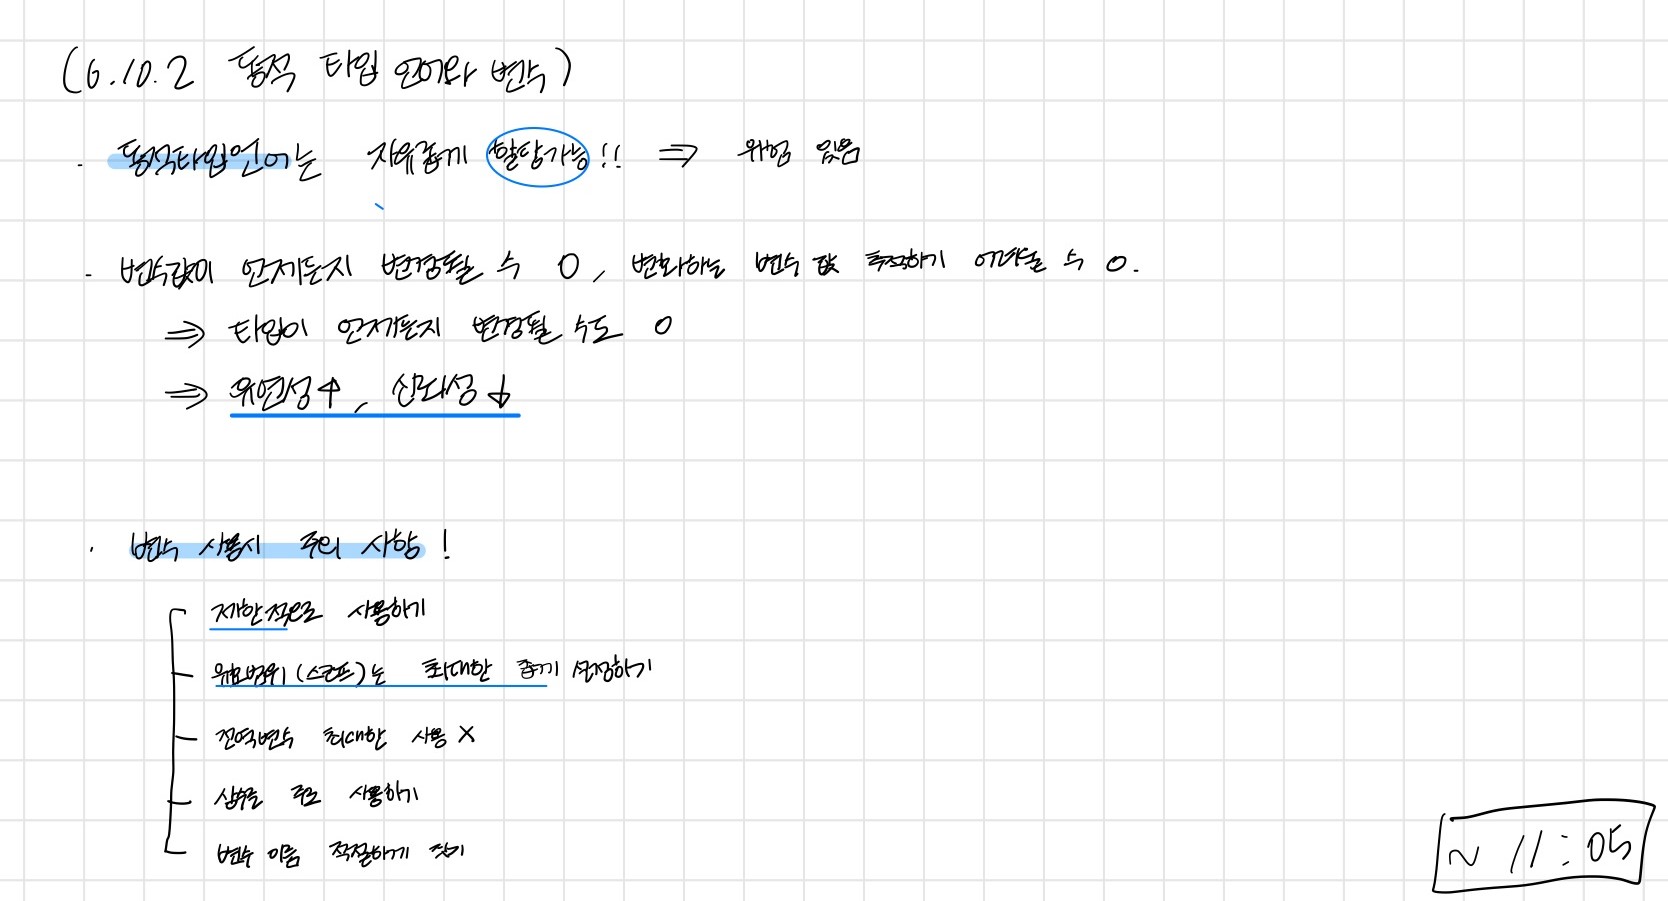 (6.10.2 동적 타입 언어와 변수)
· 동적타입언어는 자유롭게 할당가능!! ⇒ 위험 있음
- 변수값이 언제든지 변경될 수 O, 변화하는 변수 값 추적하기 어려울 수 O.
⇒ 타입이 언제든지 변경될 수도 O
⇒ 유연성↑, 신뢰성↓
· 변수 사용시 주의 사항!
제한적으로 사용하기
유효범위(스코프)는 최대한 좁게 설정하기
전역변수 최대한 사용 X
상수를 주로 사용하기
변수 이름 적절하게 짓기
~ 11:05